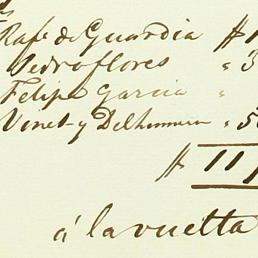 Rafl. de Guardia $1
Pedro flores " 3
Felipe Garcia "
Vinet y Delhommer " 5
$ 111
á la vuelta